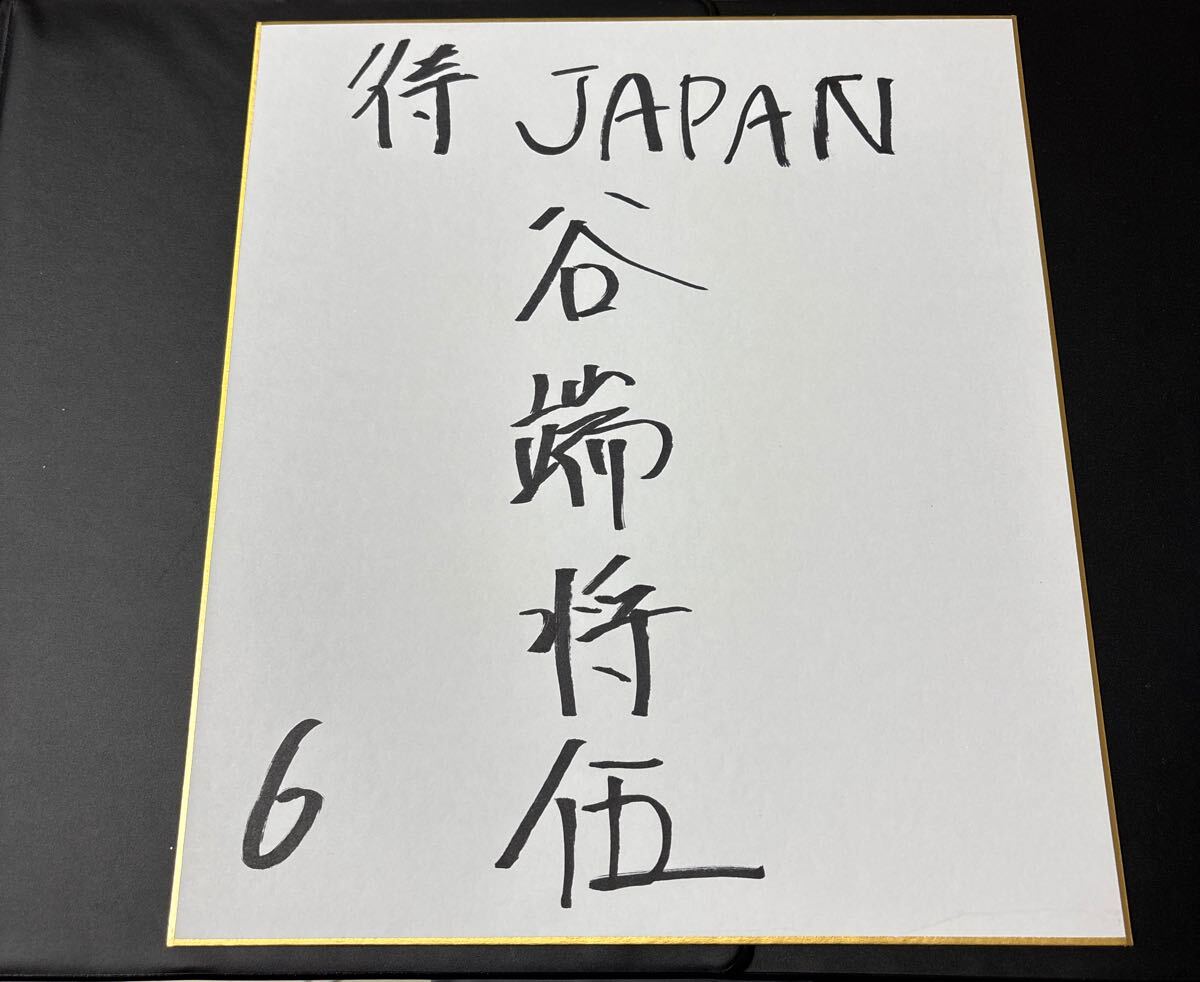 待 JAPAN
谷端将伍
6